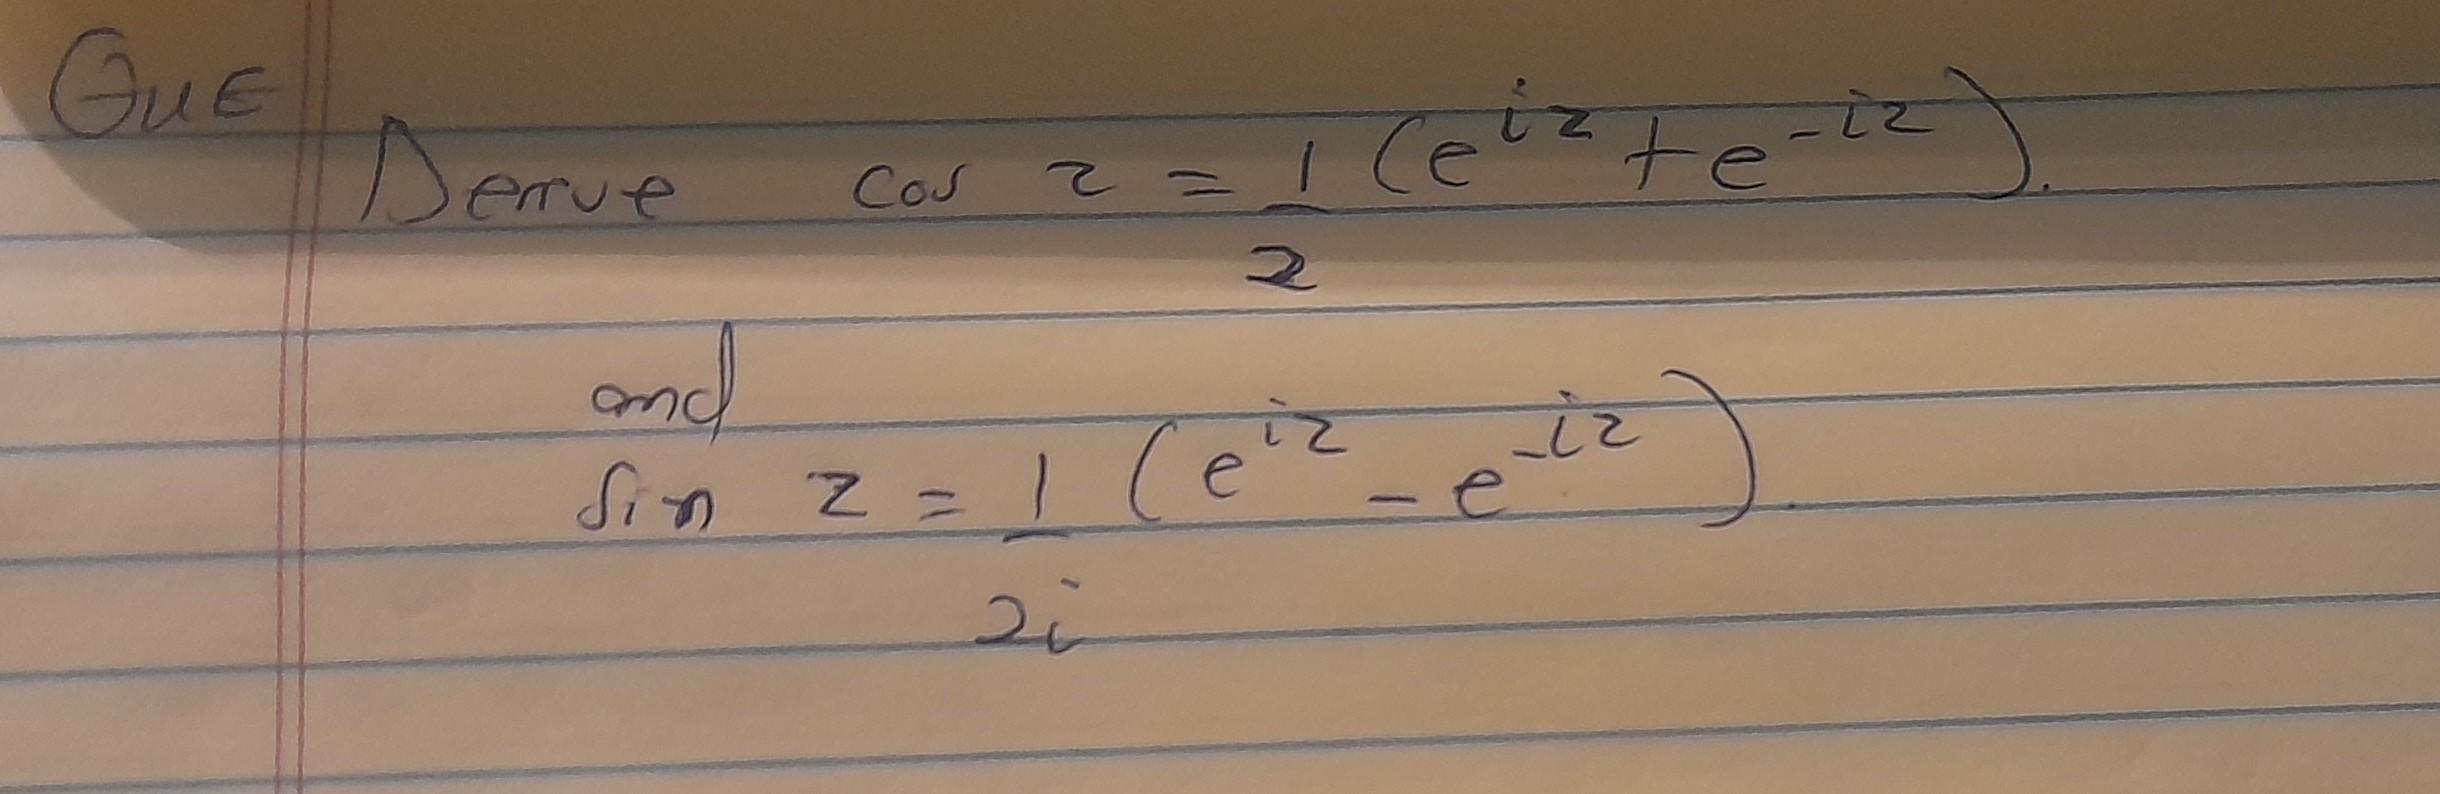 QUE
Derive cos z = 1/2 (e^{iz} + e^{-iz}).
and
Sin z = 1/2i (e^{iz} - e^{-iz}).